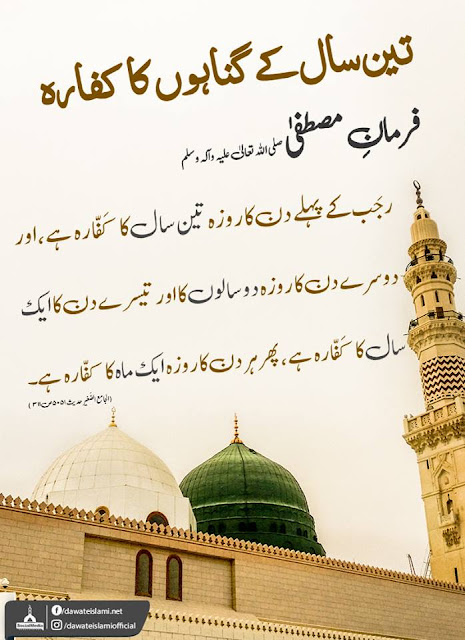 تین سال کے گناہوں کا کفارہ
فرمانِ مصطفیٰ صلی اللہ تعالیٰ علیہ واٰلہ وسلم
رجَب کے پہلے دن کا روزہ تین سال کا کَفّارہ ہے، اور
دوسرے دن کا روزہ دو سالوں کا اور تیسرے دن کا ایک
سال کا کَفّارہ ہے، پھر ہر دن کا روزہ ایک ماہ کا کَفّارہ ہے۔
(الجامع الصّغیر حدیث ۵۰۵۱ ص ۳۱۱)
/dawateislami.net
/dawateislamiofficial
SocialMedia